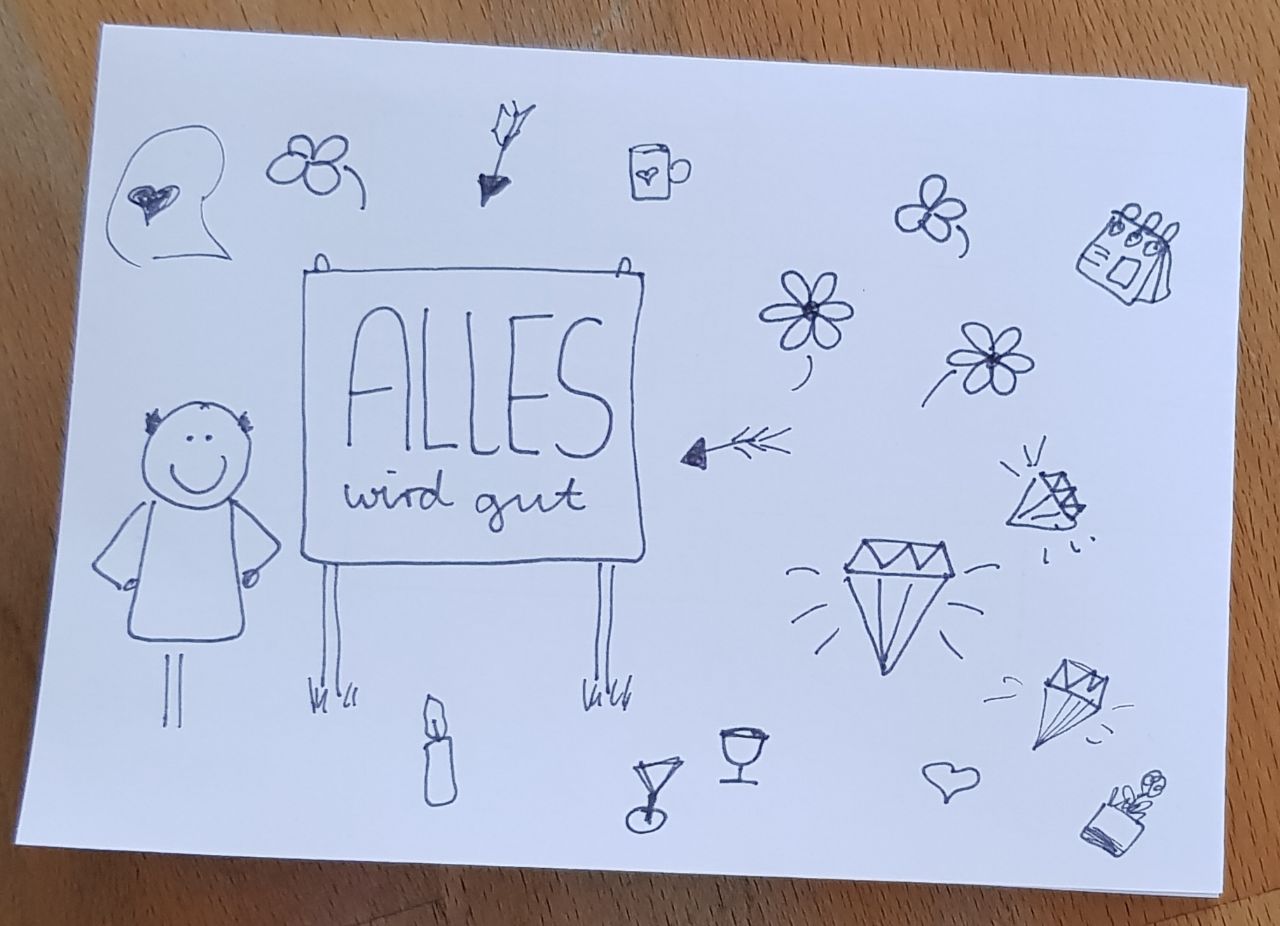 ALLES
wird gut